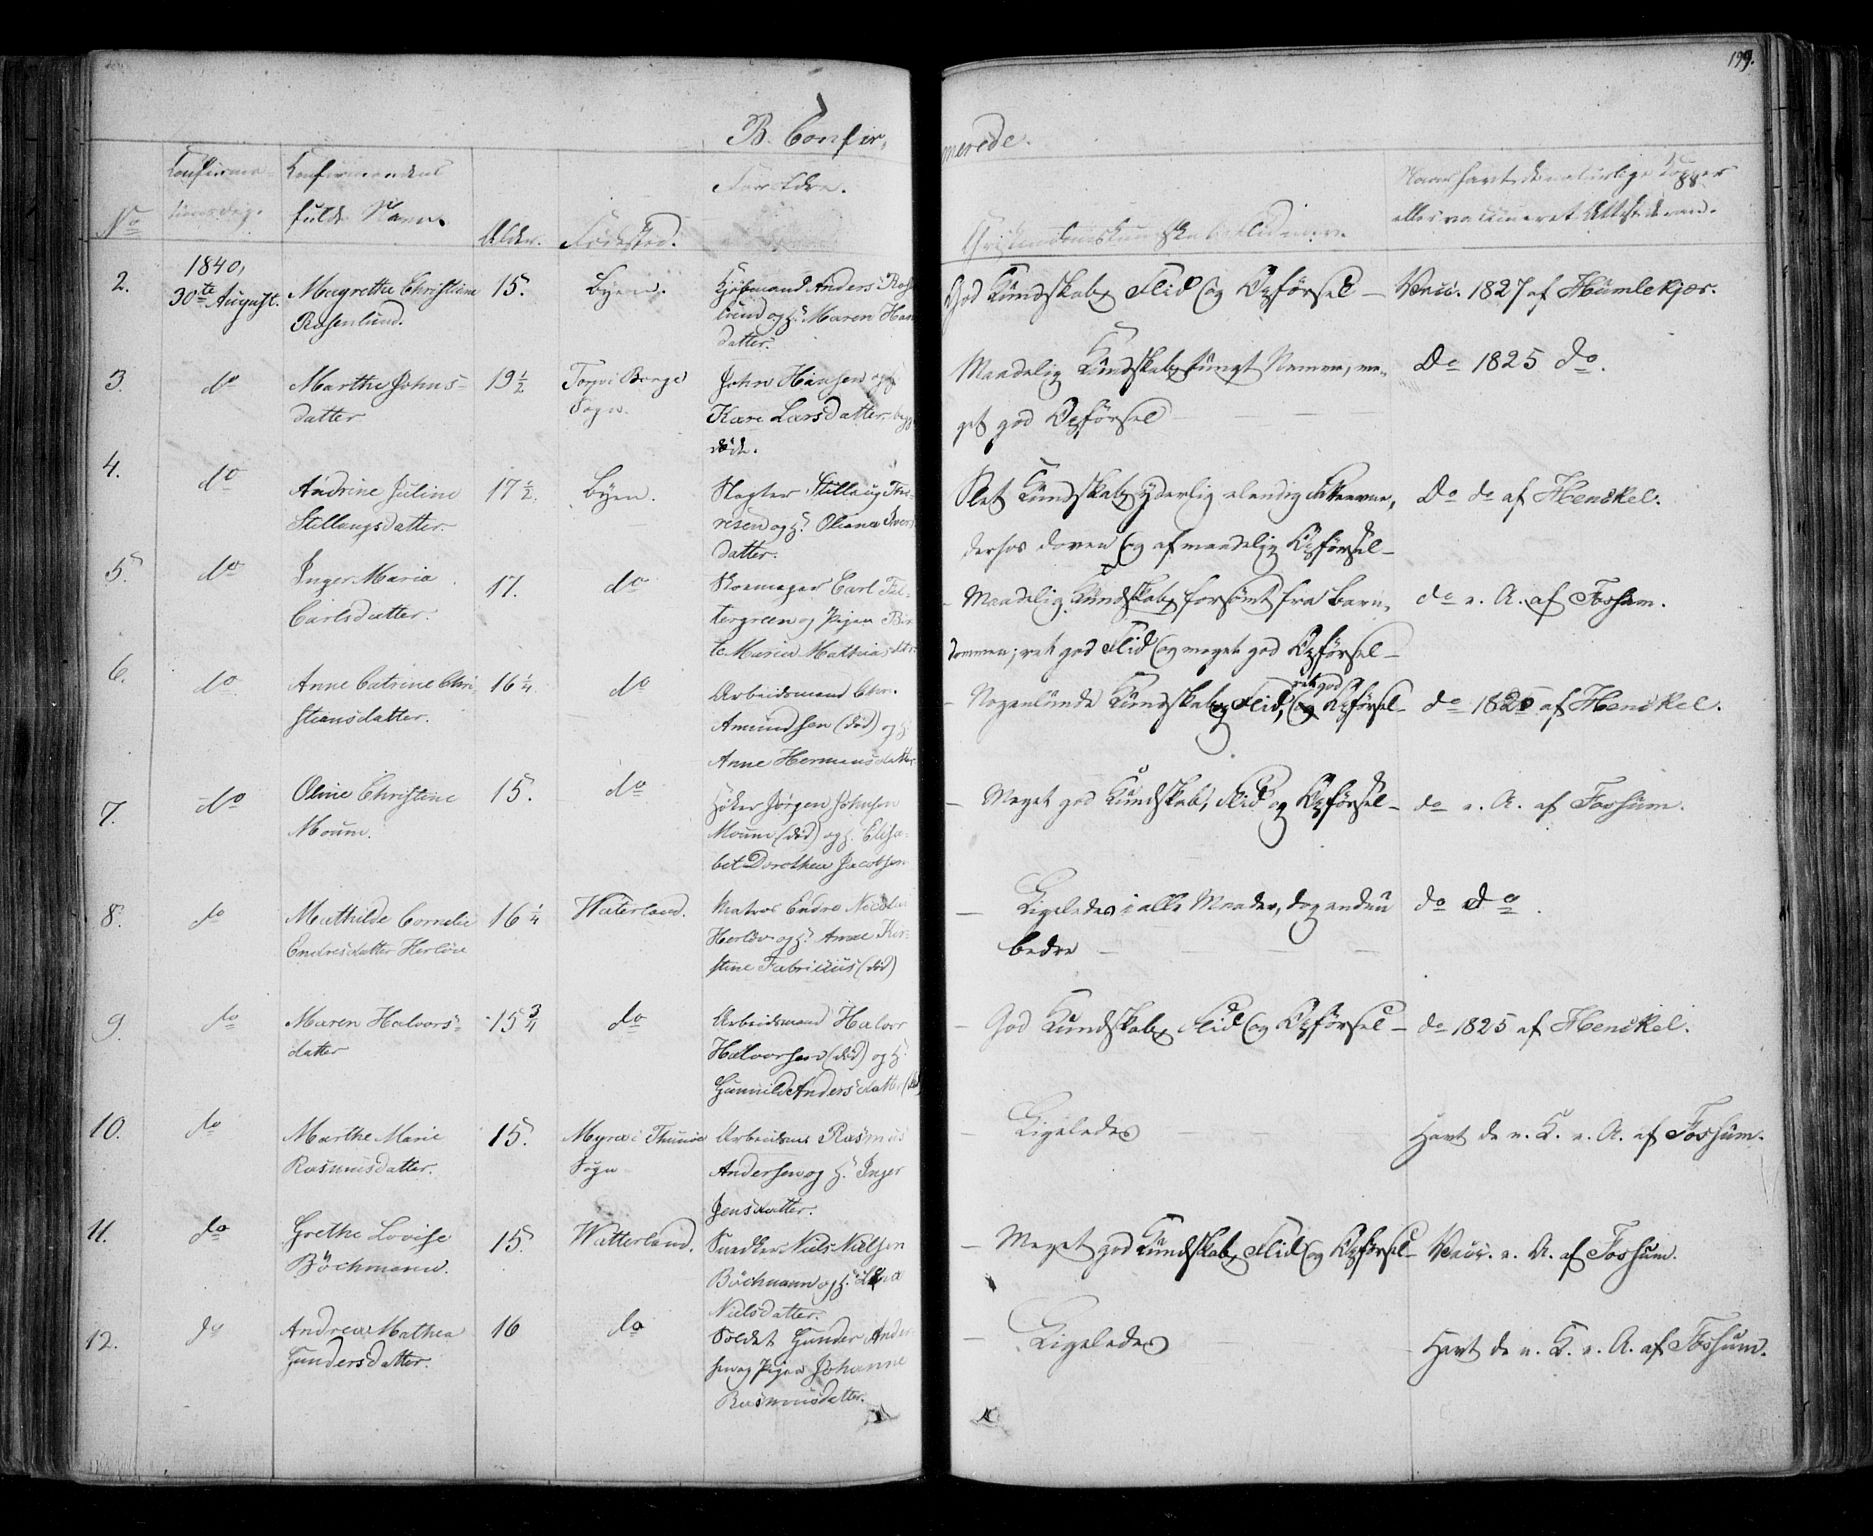 199.
B. Confir-
merede.
No
Confirma-
tions Dag.
Confirmandens
fulde Navn.
Alder.
Fødested.
Forældre.
Christendomskundskab og Flid m. v.
Naar havt de naturlige Kopper
eller vaccineret Attest derom.
2.
1840,
30te August.
Magrethe Christiane
Rosenlund.
15.
Byen.
Kjøbmand Anders Ros
lund og H. Maren Han
datter.
God Kundskab, Flid og Opførsel —
Vacc. 1827 af Humlekjær.
3.
do
Marthe Johns-
datter
19 1/2
Torp i Borge
Sogn.
John Hansen og
Kari Larsdatter begge
døde.
Maadelig Kundskab, tungt Nemme, me-
get god Opførsel
Do 1825 do.
4.
do
Andrine Juline
Stillaugsdatter.
17 1/2.
Byen.
Slagter Stillaug Tho-
resen og H. Oliana Ivers
datter.
Slet Kundskab, yderlig elendig
derhos doven og af maadelig Opførsel —
Do do af Henckel.
5.
do
Inger Maria
Carlsdatter.
17.
do
Skomager Carl
tergreen og Pigen Bir
te Maria Mathiasdtr.
Maadelig Kundskab, forsømt fra Barn-
dommen; ret god Flid og meget god Opførsel —
do u. A. af Fossum.
6.
do
Anne Catrine Chri
stiansdatter.
16 1/4
do
Arbeidsmand Chr.
Amundsen (død) og H.
Anne Hermansdatter
Nogenlunde Kundskab, Flid, ret god Opførsel —
do 1825 af Henckel.
7.
do
Oline Christine
Moum.
15.
do
Høker Jørgen Johnsen
Moum (død) og H. Elisa-
bet Dorothea Jacobsen
Meget god Kundskab, Flid og Opførsel —
do u. A. af Fossum.
8.
do
Mathilde Cornelie
Endresdatter Herløve
16 1/4
Waterland.
Matros Endre Nicolai
Herløv og H. Anne Kir-
stine Fabricius (død)
Ligeledes i alle Maader, dog endnu
bedre —
do do.
9.
do
Maren Halvors-
datter
15 3/4
do
Arbeidsmand Halvor
Halvorsen (død) og H.
Gunnild Andersdatter (død)
God Kundskab, Flid og Opførsel —
do 1825 af Henckel.
10.
do
Marthe Marie
Rasmusdatter.
15.
Myra i Thunøe
Sogn
Arbeidsm. Rasmus
Andersen og H. Inger
Jensdatter.
Ligeledes
Havt de n. K. u. A. af Fossum.
11.
do
Grethe Lovise
Böchmann.
15.
Watterland.
Snedker Niels Nielsen
Böchmann og H.
Nielsdatter.
Meget god Kundskab, Flid og Opførsel —
Vacc. u. A. af Fossum.
12.
do
Andrea Mathea
Gundersdatter.
16
do
Soldat Gunder Ander
sen og Pigen Johanne
Rasmusdatter.
Ligeledes
Havt de n. K. u. A. af Fossum.